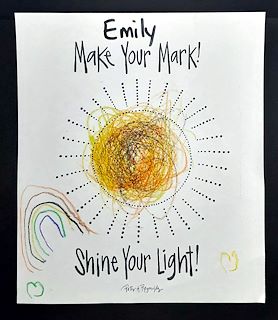 Emily
Make Your Mark!
Shine Your Light!
Peter H Reynolds